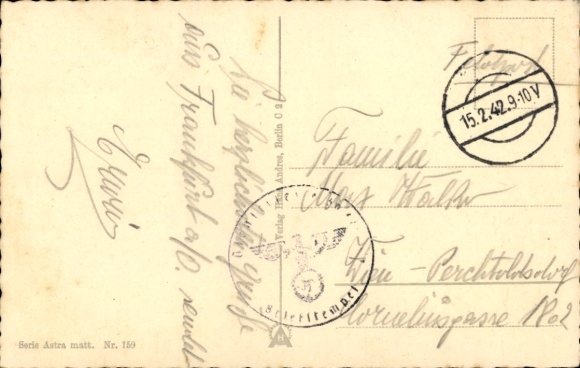 Die herzlichsten Grüße
aus Frankfurt a/O. sendet
Erwin
Serie Astra matt. Nr. 159
Verlag Andres, Berlin C 2
Feldpost
15.2.42.9-10 V
Familie
Max
Wien - Perchtoldsdorf
Corneliusgasse No 2
Briefstempel